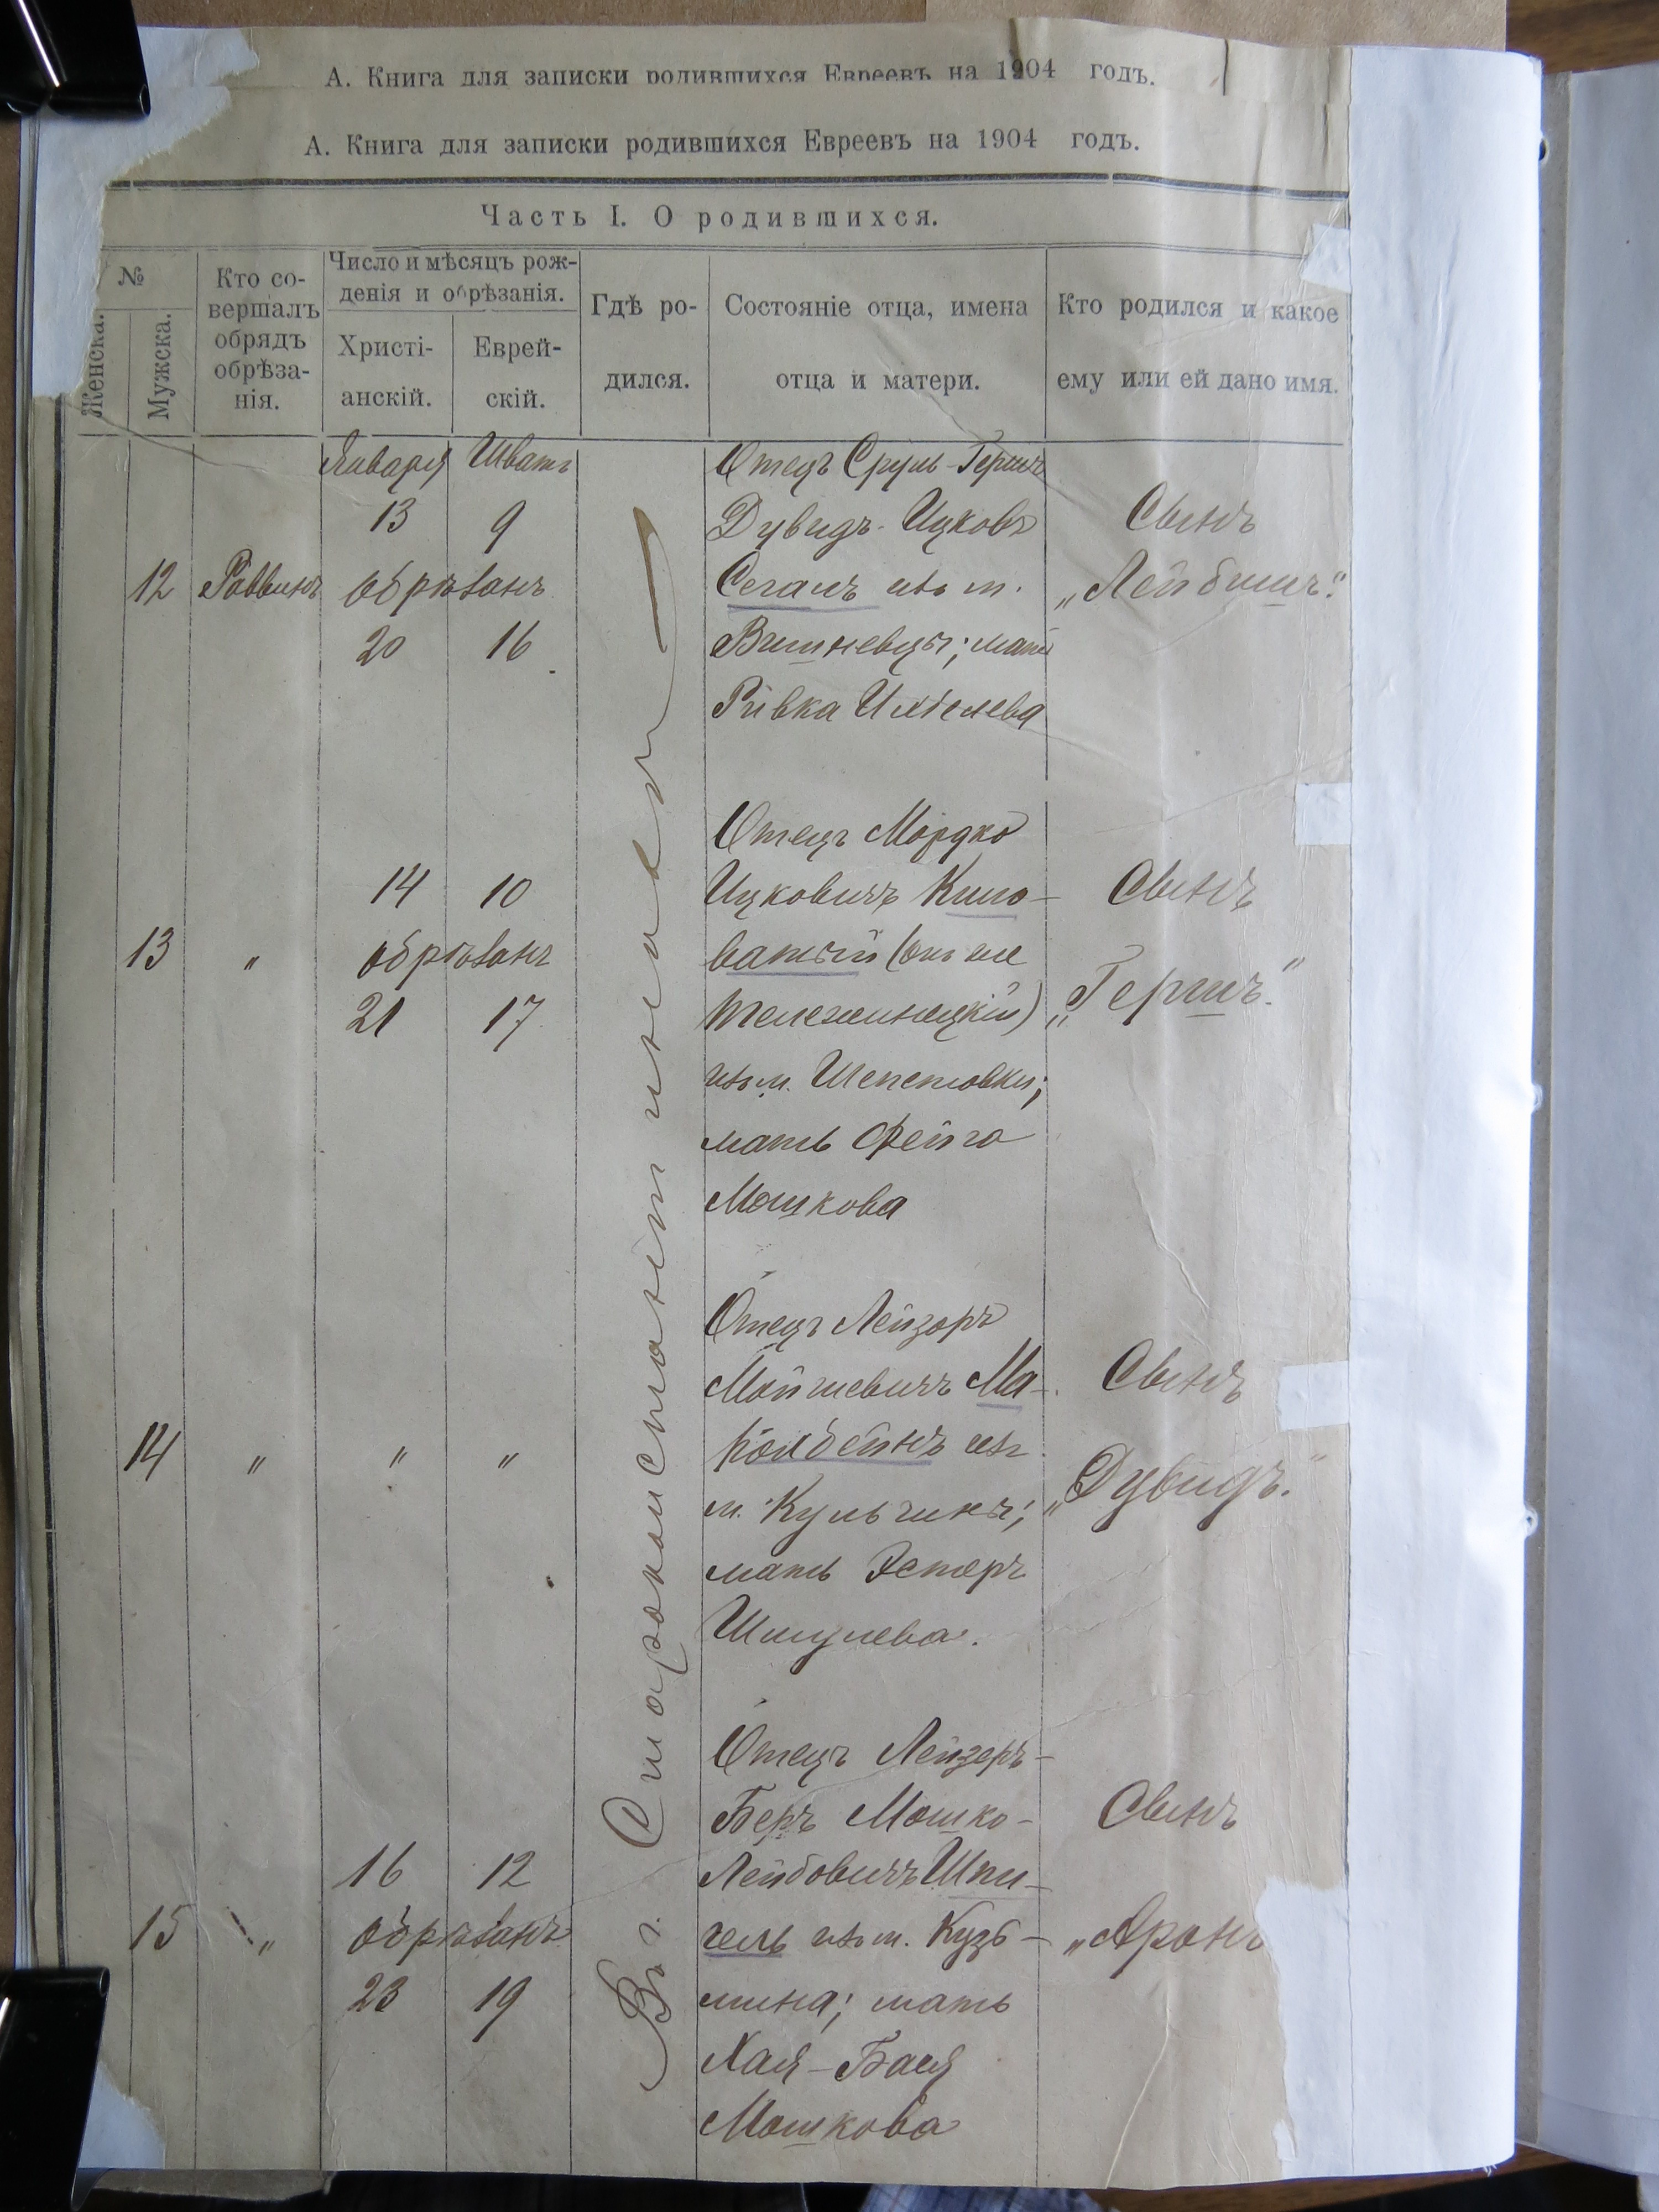 А. Книга для записки родившихся Евреевъ на 1904 годъ.
А. Книга для записки родившихся Евреевъ на 1904 годъ.
Часть I. О родившихся.
№
Женска.
Мужска.
Кто со-
вершалъ
обрядъ
обрѣза-
нія.
Число и мѣсяцъ рож-
денія и обрѣзанія.
Христі-
анскій.
Еврей-
скій.
Гдѣ ро-
дился.
Состояніе отца, имена
отца и матери.
Кто родился и какое
ему или ей дано имя.
Въ г. Староконстантиновѣ
12
Раввинъ
Января Шватъ
13 9
обрѣзанъ
20 16
Отецъ Сруль-Гершъ
Дувидъ-Ицковъ
Сегалъ изъ м.
Вишневцы; мать
Ривка Ихіелева
Сынъ
„Лейбишъ."
13
"
14 10
обрѣзанъ
21 17
Отецъ Мордко
Ицковичъ Кило-
ватый (онъ же
Тележинецкій)
изъ м. Шепетовки;
мать Фейга
Мошкова
Сынъ
„Гершъ."
14
"
" "
Отецъ Лейзоръ
Мойшевичъ Ма-
кольбейнъ изъ
м. Кульчины;
мать Эстеръ
Шмулева.
Сынъ
„Дувидъ."
15
"
16 12
обрѣзанъ
23 19
Отецъ Лейзеръ-
Беръ Мошко-
Лейбовичъ Шпи-
гель изъ м. Кузь-
мина; мать
Хая-Бася
Мошкова
Сынъ
„Аронъ